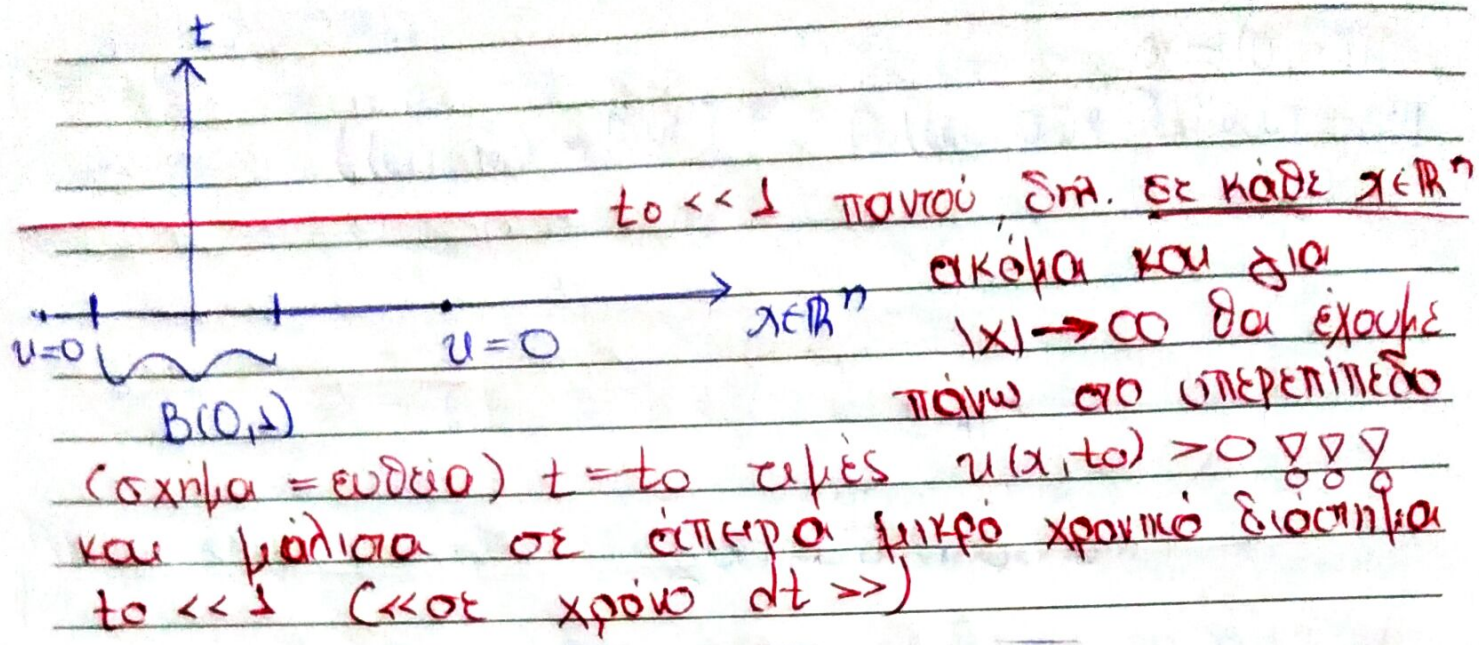 t
to << 1 παντού, δηλ. σε κάθε x∈ℝⁿ
ακόμα και για
x∈ℝⁿ
|x| → ∞ θα έχουμε
u=0
u=0
πάνω στο υπερεπίπεδο
B(0,1)
(σχήμα = ευθεία) t = to τιμές u(x,to) > 0 !!!
και μάλιστα σε άπειρα μικρό χρονικό διάστημα
to << 1 (<<σε χρόνο dt >>)